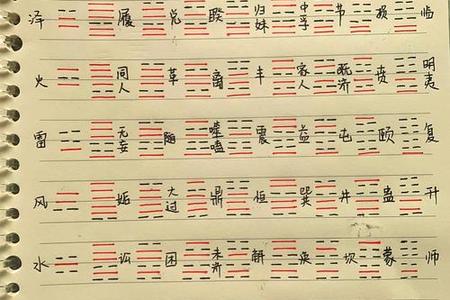 泽 履 兑 睽 归妹 中孚 节 损 临
火 同人 革 离 丰 家人 既济 贲 明夷
雷 无妄 随 噬嗑 震 益 屯 颐 复
风 姤 大过 鼎 恒 巽 井 蛊 升
水 讼 困 未济 解 涣 坎 蒙 师